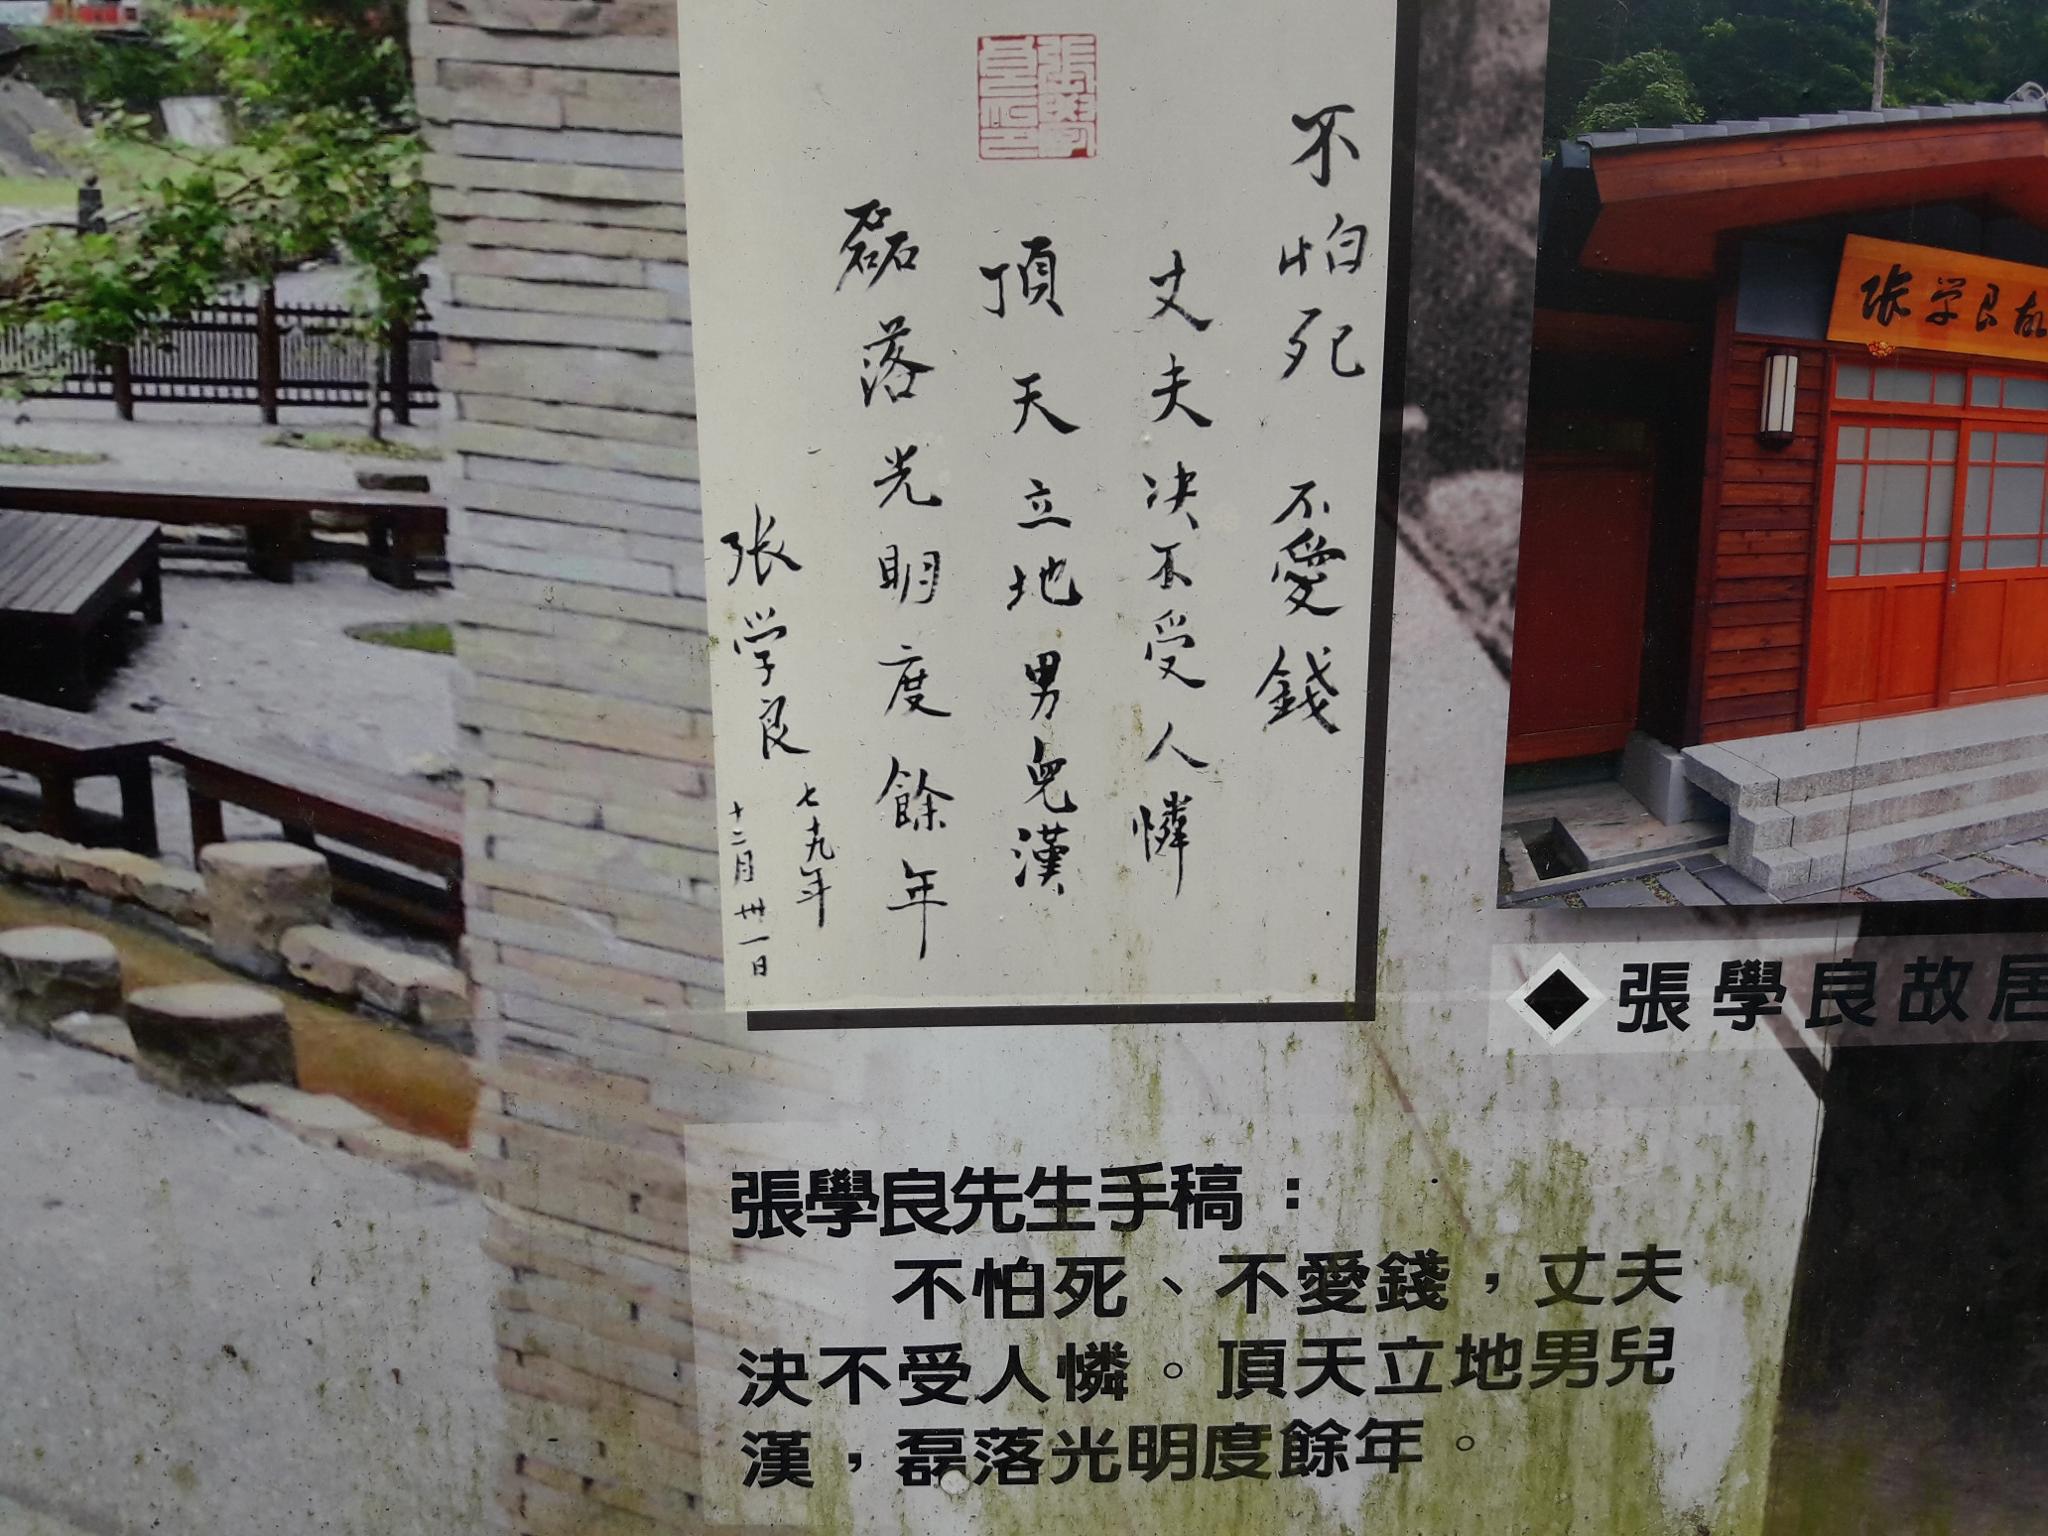 不怕死 不愛錢
丈夫决不受人憐
頂天立地男兒漢
磊落光明度餘年
張学良
七十九年
十二月卅一日
張学良故
張學良故居
張學良先生手稿：
不怕死、不愛錢，丈夫
決不受人憐。頂天立地男兒
漢，磊落光明度餘年。